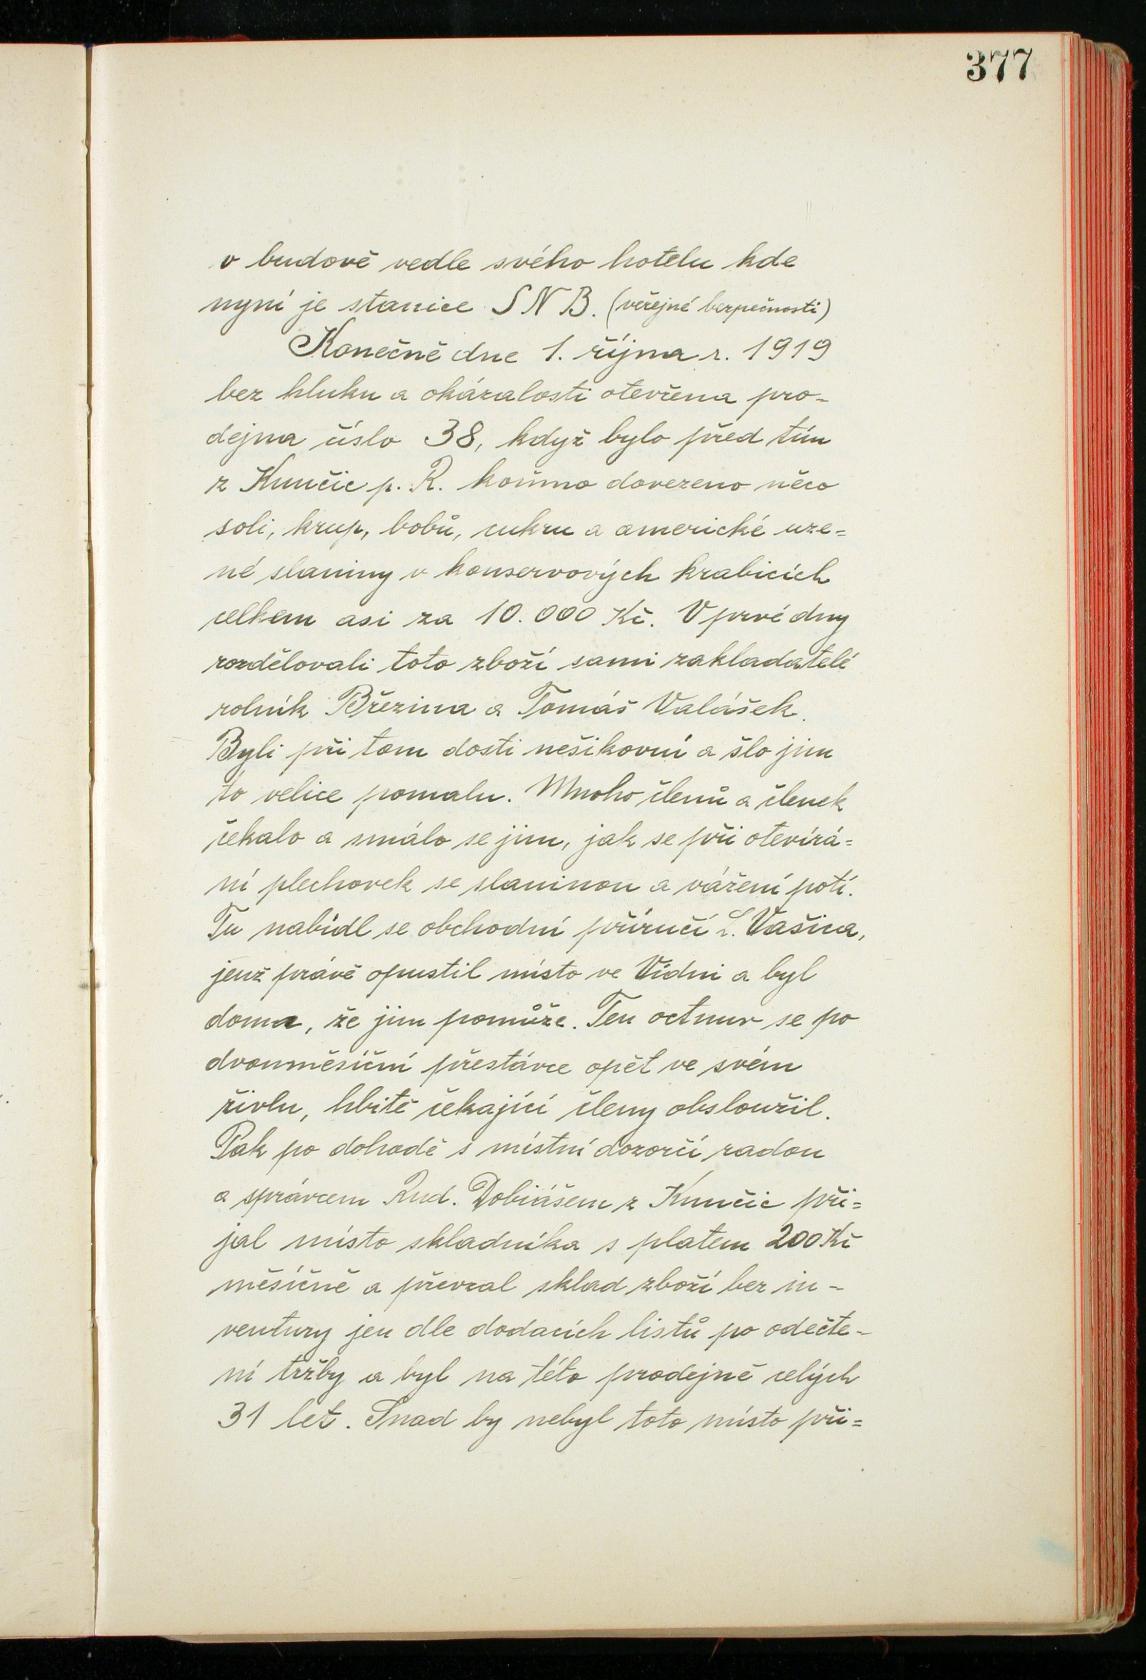 377
v budově vedle svého hotelu kde
nyní je stanice SNB. (veřejné bezpečnosti)
Konečně dne 1. října r. 1919
bez hluku a okázalosti otevřena pro-
dejna číslo 38, když bylo před tím
z Kunčic p. R. koňmo dovezeno něco
soli, krup, bobů, cukru a americké uze=
né slaniny v konservových krabicích
celkem asi za 10.000 Kč. V prvé dny
rozdělovali toto zboží sami zakladatelé
rolník Březina a Tomáš Valášek.
Byli při tom dosti nešikovní a šlo jim
to velice pomalu. Mnoho členů a členek
čekalo a smálo se jim, jak se při otevírá=
ní plechovek se slaninou a vážení potí.
Tu nabídl se obchodní příručí L. Vašica,
jenž právě opustil místo ve Vídni a byl
doma, že jim pomůže. Ten octnuv se po
dvouměsíční přestávce opět ve svém
živlu, hbitě čekající členy obsloužil.
Pak po dohodě s místní dozorčí radou
a správcem Rud. Dobiášem z Kunčic při=
jal místo skladníka s platem 200 Kč
měsíčně a převzal sklad zboží bez in-
ventury jen dle dodacích listů po odečte-
ní tržby a byl na této prodejně celých
31 let. Snad by nebyl toto místo při=